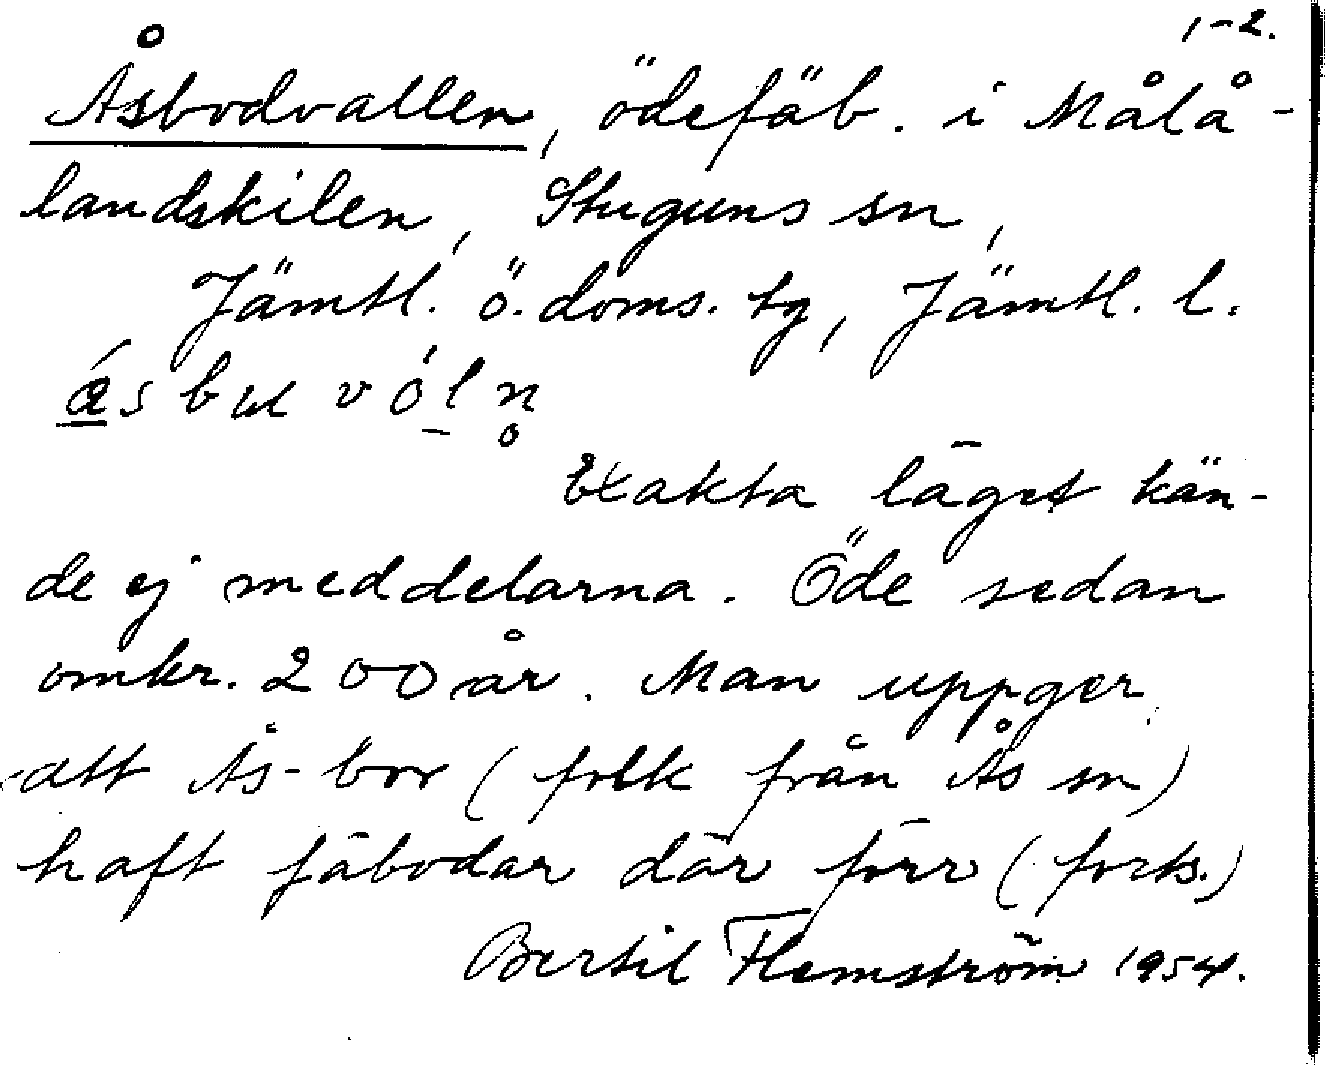 1-2.
Åsbodvallen, ödefäb. i Målå-
landskilen, Stuguns sn,
Jämtl. ö. doms. tg, Jämtl. l.
Exakta läget kän-
de ej meddelarna. Öde sedan
omkr. 200 år. Man uppger
att Ås-bor (folk från Ås sn)
haft fäbodar där förr (forts.)
Bertil Flemström 1954.